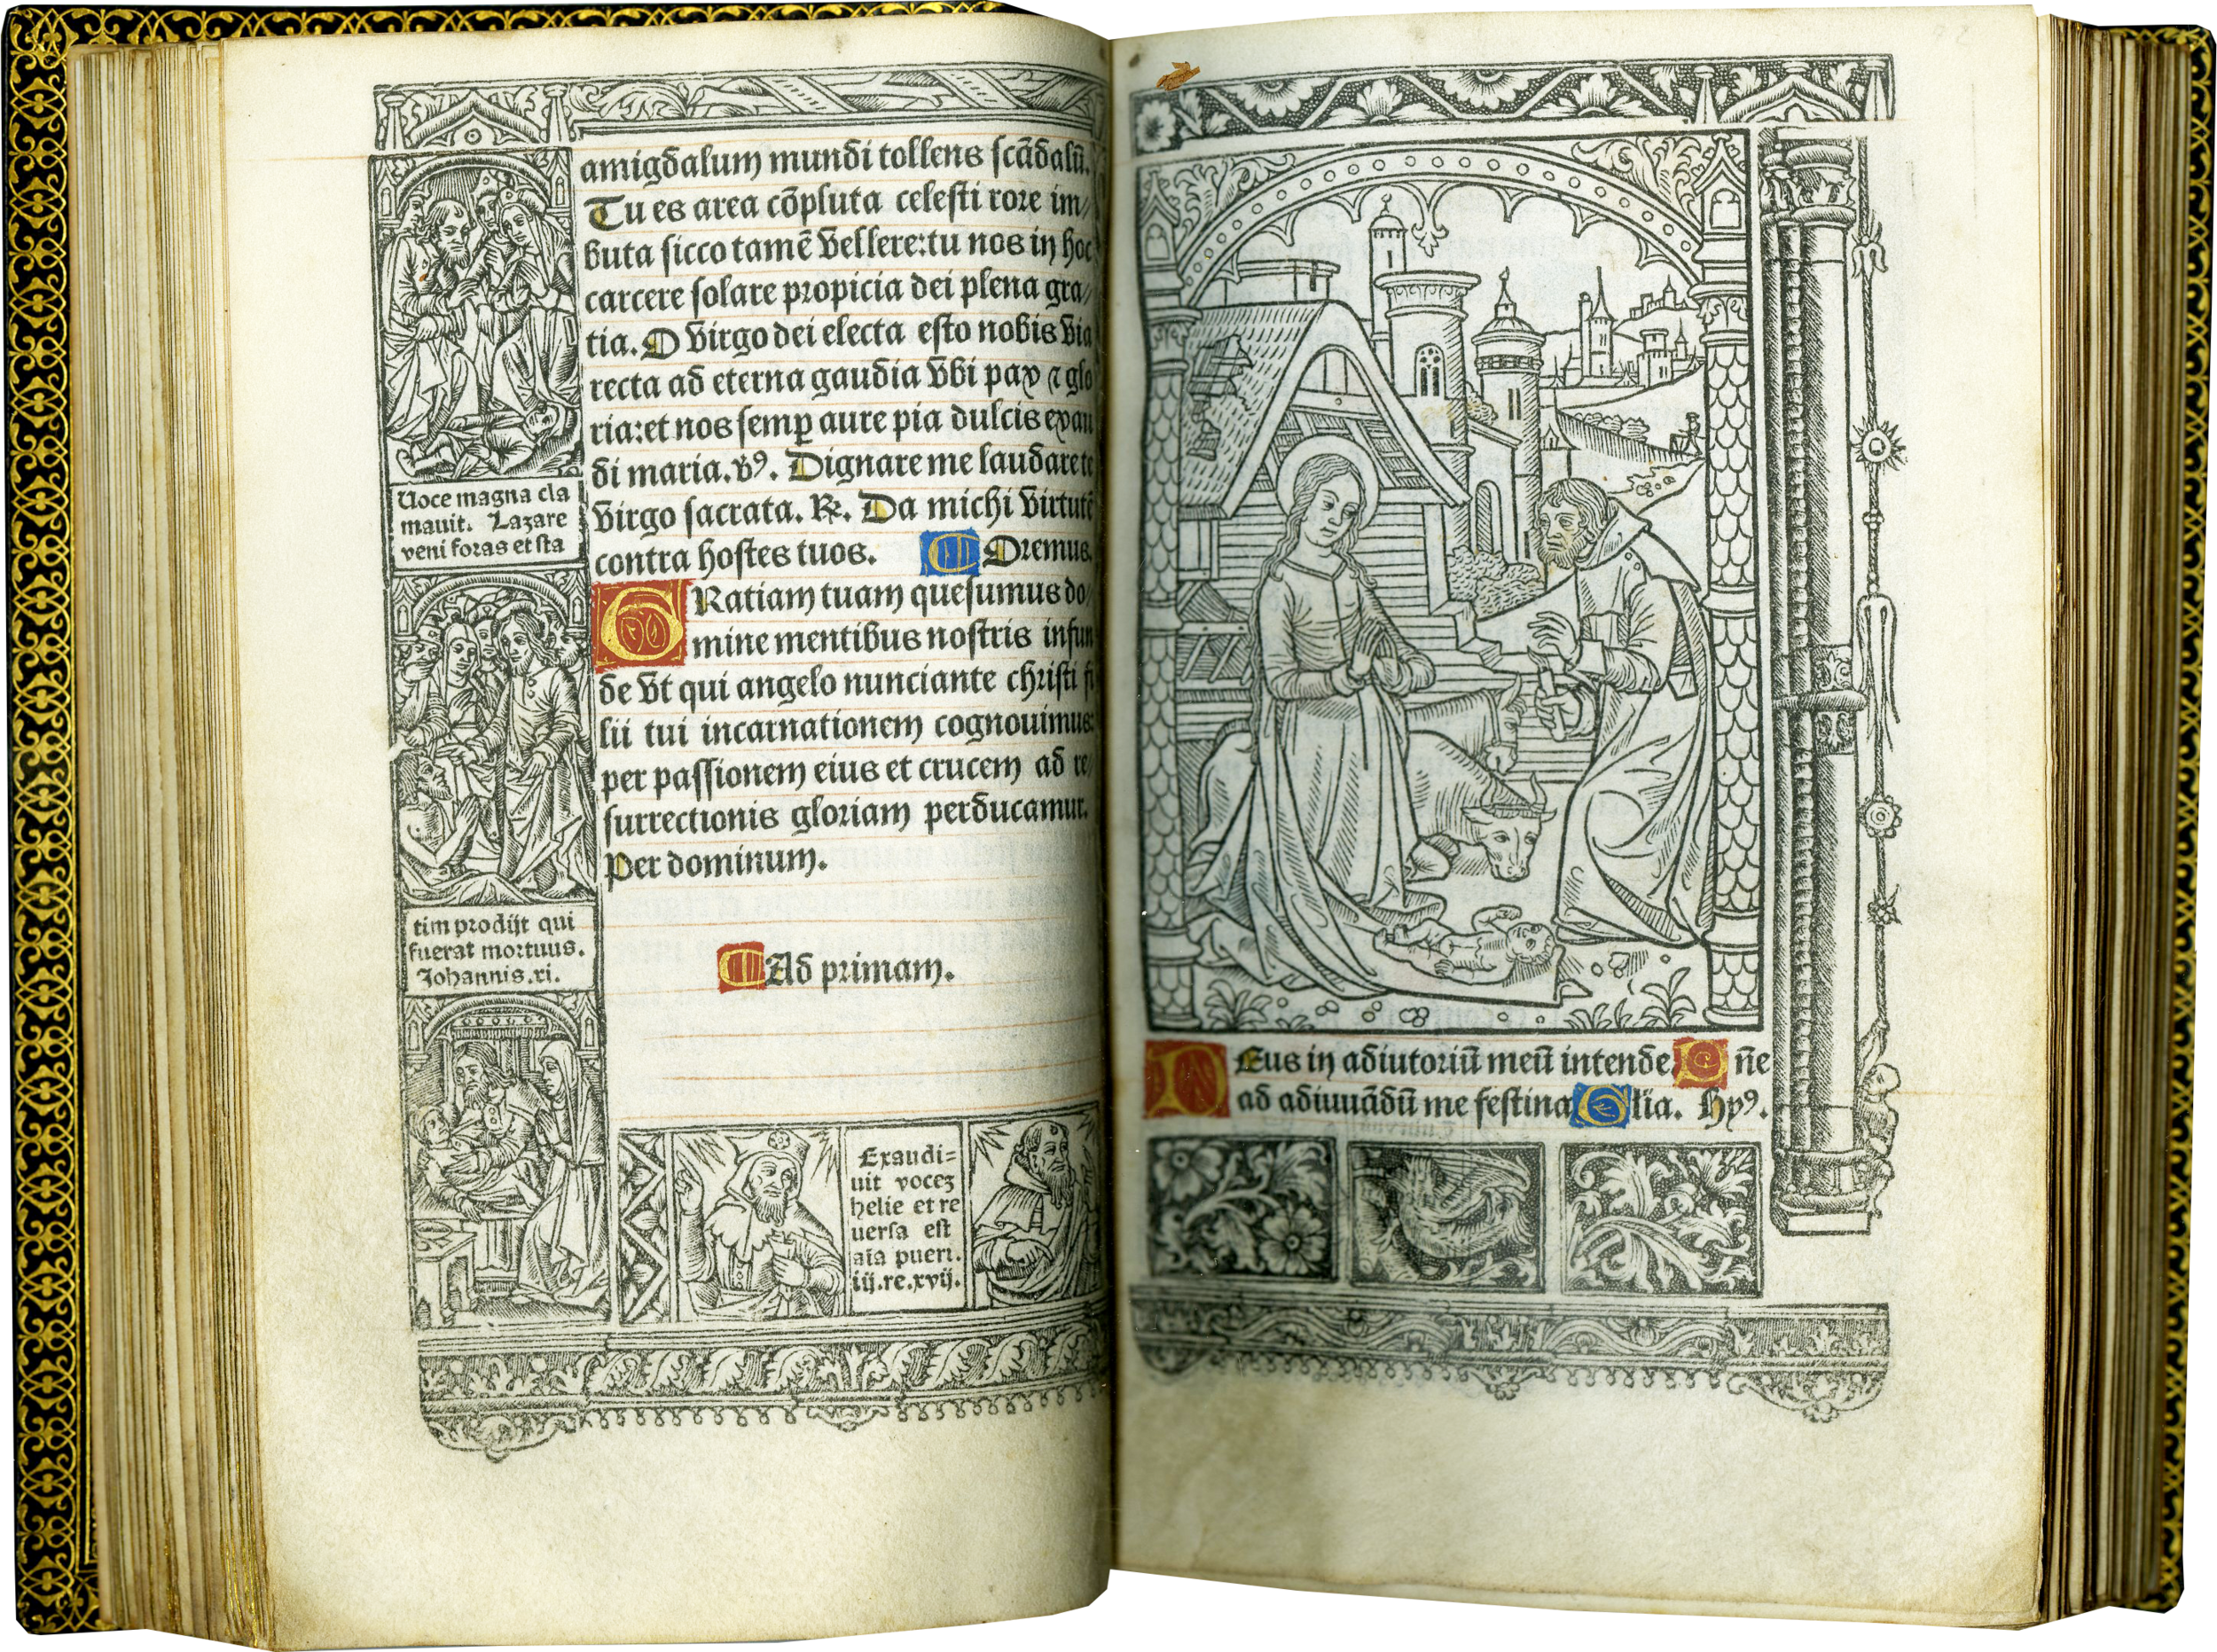 amigdalum mundi tollens scādalū.
Tu es area cōpluta celesti rore im/
buta sicco tamē vellere: tu nos in hoc
carcere solare propicia dei plena gra/
tia. O virgo dei electa esto nobis via
recta ad eterna gaudia vbi pax ⁊ glo
ria: et nos semꝑ aure pia dulcis exau
di maria. vꝰ. Dignare me laudare te
virgo sacrata. ℟. Da michi virtutē
contra hostes tuos. Oremus.
GRatiam tuam quesumus do/
mine mentibus nostris infun
de vt qui angelo nunciante christi fi
lii tui incarnationem cognouimus:
per passionem eius et crucem ad re/
surrectionis gloriam perducamur.
Per dominum.
Ad primam.
Uoce magna cla
mauit. Lazare
veni foras et sta
tim prodijt qui
fuerat mortuus.
Johannis. xi.
Exaudi=
uit vocez
helie et re
uersa est
aīa pueri.
iij. re. xvij.
DEus in adiutoriū meū intende Dn̄e
ad adiuuādū me festina Glīa. Hyꝰ.